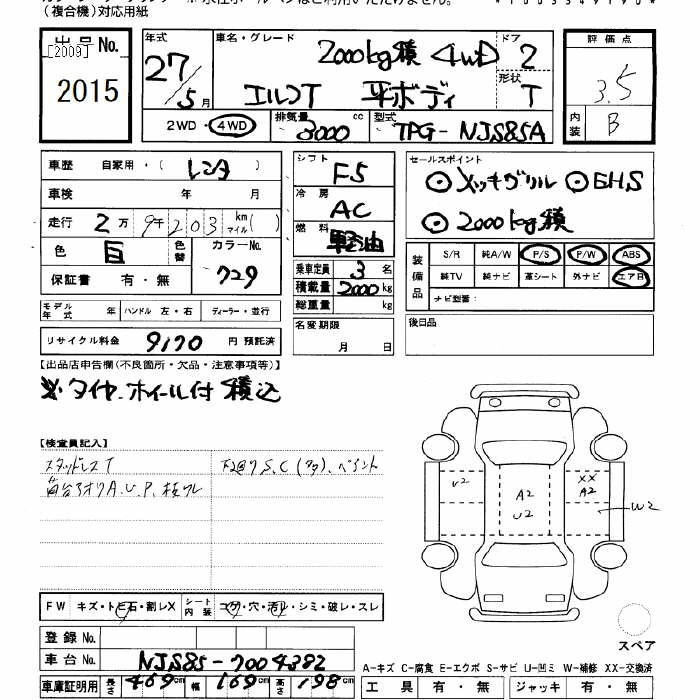 (複合機)対応用紙
出品No. [2009] 2015
年式 27/5月
車名・グレード 2000kg積 4WD エルフT 平ボディ
ドア 2 形状 T
2WD・4WD 排気量 3000 cc 型式 TPG-NJS85A
評価点 3.5
内装 B
車歴 自家用・(レンタ)
車検 年 月
走行 2万9千203 km マイル( )
色 白 色替 カラーNo. 729
保証書 有・無
モデル年式 年 ハンドル 左・右 ディーラー・並行
リサイクル料金 9170 円 預託済
シフト F5
冷房 AC
燃料 軽油
乗車定員 3 名
積載量 2000 kg
総重量 kg
名変期限 月 日
セールスポイント
メッキグリル
2000kg積
装備品 S/R 純A/W P/S P/W ABS
純TV 純ナビ 革シート 外ナビ エアB
ナビ型番:
後日品
【出品店申告欄(不良箇所・欠品・注意事項等)】
※タイヤ.ホイール付 積込
【検査員記入】
スタッドレスT
下廻りS.C(多)、ペイント
荷台アオリA.U.P.
FW キズ・トビ石・割レX シート内装 コゲ・穴・汚レ・シミ・破レ・スレ
U2
A2
U2
XX
A2
W2
スペア
登録No.
車台No. NJS85-7004382
車庫証明用 長さ 469cm 幅 169cm 高さ 198cm
A-キズ C-腐食 E-エクボ S-サビ U-凹ミ W-補修 XX-交換済
工具 有・無 ジャッキ 有・無